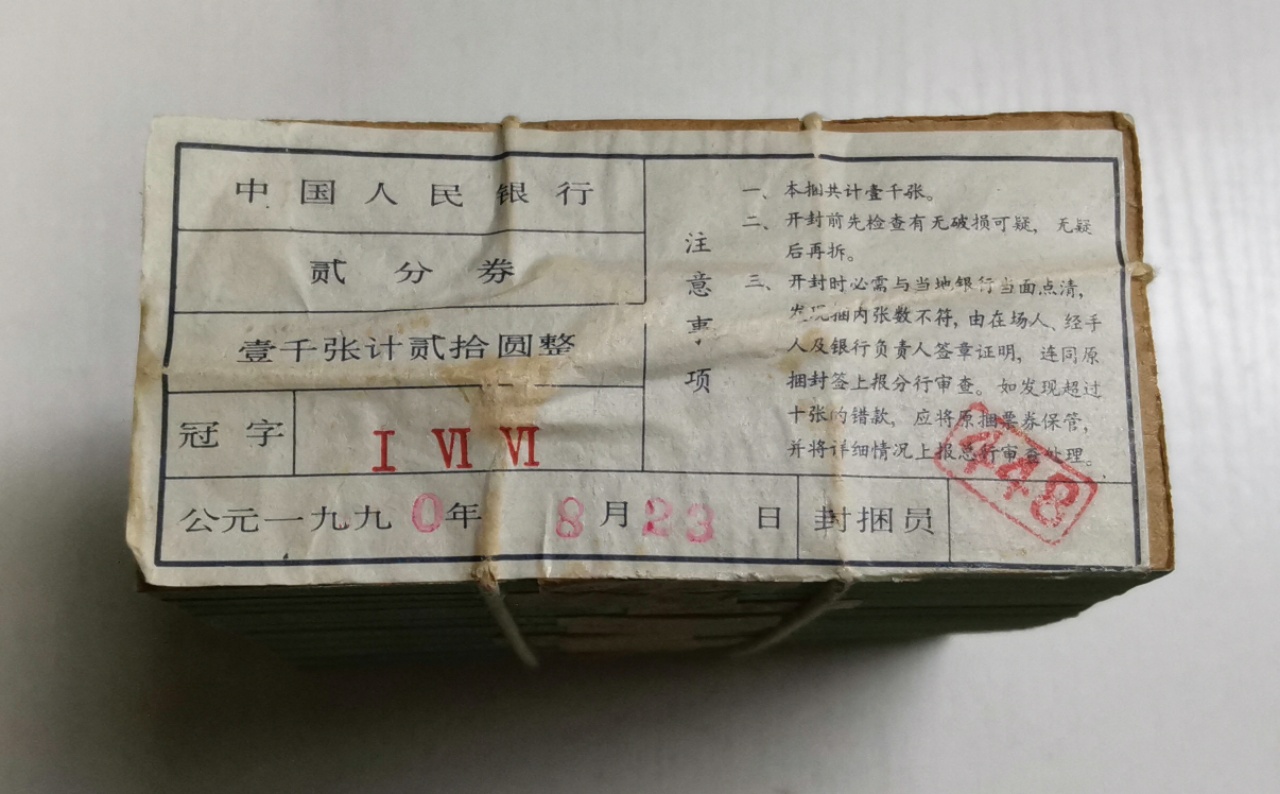 中国人民银行
贰分券
壹千张计贰拾圆整
冠字
I VI VI
注意事项
一、本捆共计壹千张。
二、开封前先检查有无破损可疑，无疑
后再拆。
三、开封时必需与当地银行当面点清，
发现捆内张数不符，由在场人、经手
人及银行负责人签章证明，连同原
捆封签上报分行审查。如发现超过
十张的错款，应将原捆票券保管，
并将详细情况上报总行审查处理。
公元一九九0年8月23日
封捆员
448